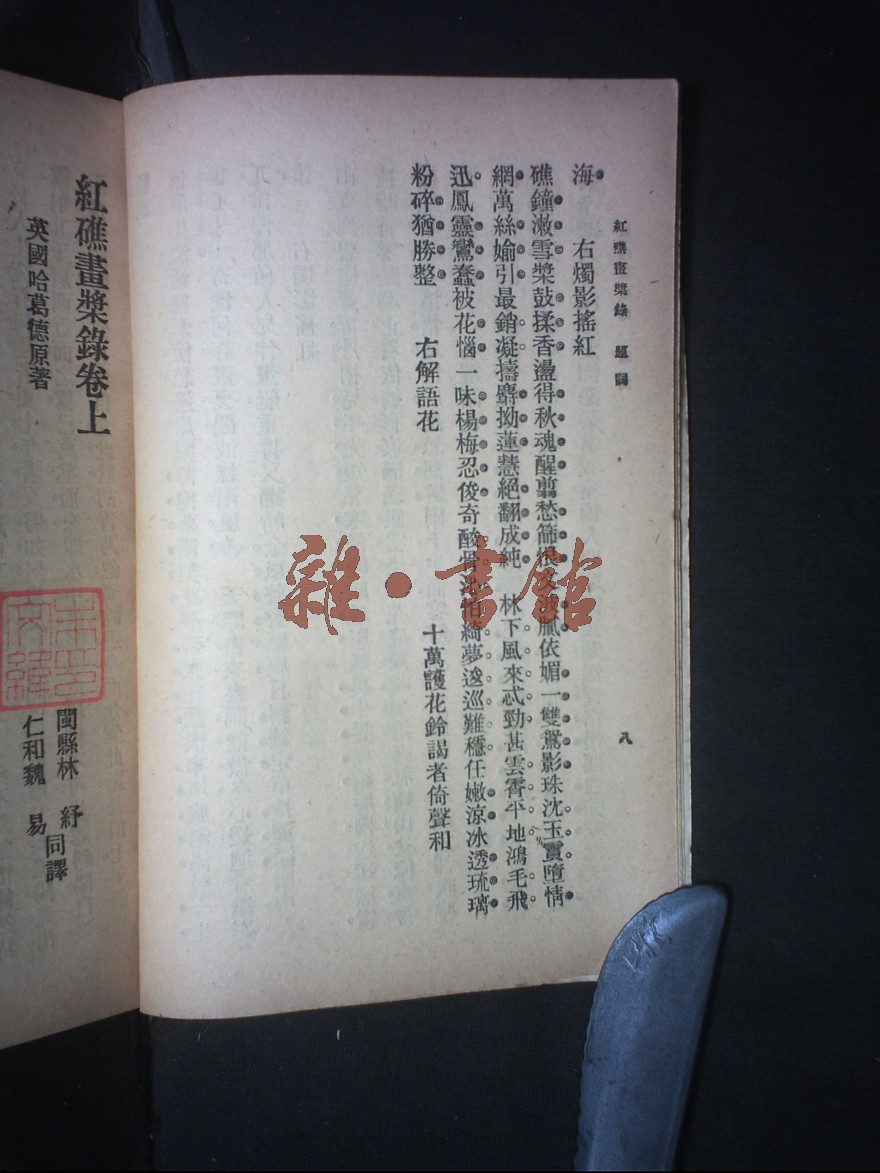 紅礁畫槳錄 題詞
八
海 右燭影搖紅
礁鐘漱雪槳鼓揉香盪得秋魂醒翦愁篩恨 膩依媚一雙鴛影珠沈玉實墮情
網萬絲媮引最銷凝擣麝拗蓮慧絕翻成純 林下風來忒勁甚雲霄平地鴻毛飛
迅鳳靈鸞蠢被花惱一味楊梅忍俊奇酸骨沁怕綺夢逡巡難穩任嫩涼冰透琉璃
粉碎猶勝整 右解語花 十萬護花鈴謁者倚聲和
紅礁畫槳錄卷上
英國哈葛德原著
閩縣林 紓
仁和魏 易
同譯
雜·書館